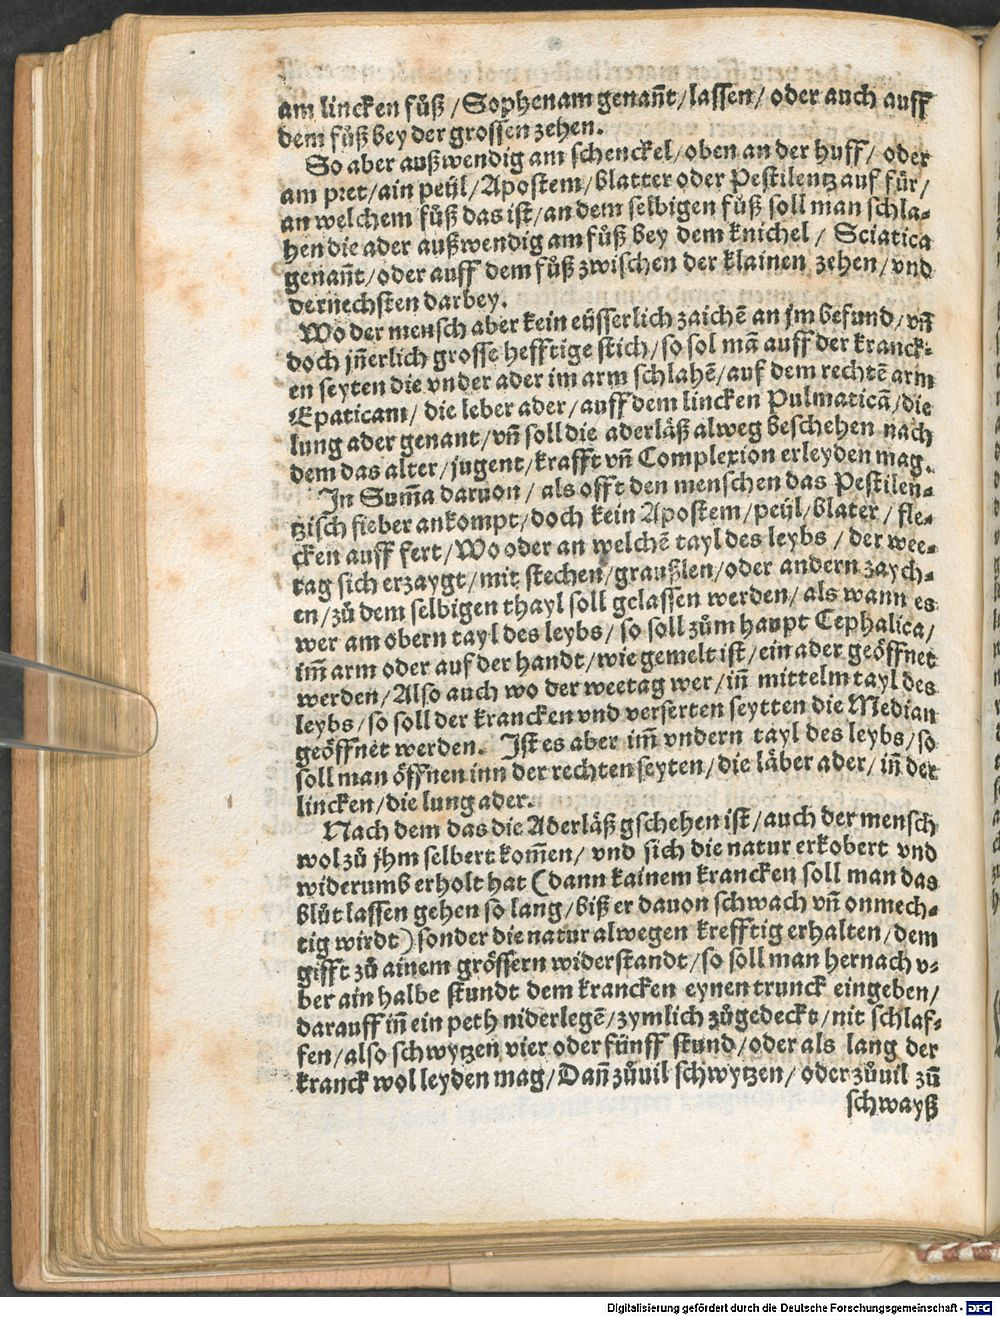 am lincken fůß /Sophenam genañt/lassen/ oder auch auff
dem fůß bey der grossen zehen.
So aber außwendig am schenckel/oben an der huff/ oder
am pret/ain peül/Apostem/blatter oder Pestilentz auf für/
an welchem fůß das ist/an dem selbigen fůß soll man schla-
hen die ader außwendig am fůß bey dem knichel / Sciatica
genañt/oder auff dem fůß zwischen der klainen zehen/vnd
der nechsten darbey.
Wo der mensch aber kein eüsserlich zaichē an jm befund/vñ
doch jñerlich grosse hefftige stich/so sol mā auff der kranck-
en seyten die vnder ader im arm schlahē/auf dem rechtē arm
Epaticam/ die leber ader/auff dem lincken Pulmaticā/die
lung ader genant/vñ soll die aderläß alweg beschehen nach
dem das alter/jugent/krafft vñ Complexion erleyden mag.
In Sum̃a daruon / als offt den menschen das Pestilen-
tzisch fieber ankompt/doch kein Apostem/peül/blater / fle-
cken auff fert/Wo oder an welchē tayl des leybs / der wee-
tag sich erzaygt/mit stechen/graußlen/oder andern zaych-
en/zů dem selbigen thayl soll gelassen werden/als wann es
wer am obern tayl des leybs/so soll zům haupt Cephalica/
im̃ arm oder auf der handt/wie gemelt ist/ein ader geöffnet
werden/Also auch wo der weetag wer/iñ mittelm tayl des
leybs/so soll der krancken vnd verserten seytten die Median
geöffnet werden. Ist es aber im̃ vndern tayl des leybs/so
soll man öffnen inn der rechten seyten/die läber ader/iñ der
lincken/die lung ader.
Nach dem das die Aderläß gschehen ist/auch der mensch
wol zů jhm selbert kom̃en/ vnd sich die natur erkobert vnd
widerumb erholt hat (dann kainem krancken soll man das
blůt lassen gehen so lang/biß er dauon schwach vñ onmech-
tig wirdt) sonder die natur alwegen krefftig erhalten/dem
gifft zů ainem grössern widerstandt/so soll man hernach v-
ber ain halbe stundt dem krancken eynen trunck eingeben/
darauff iñ ein peth niderlegē/zymlich zůgedeckt/nit schlaf-
fen/also schwytzen vier oder fünff stund/oder als lang der
kranck wol leyden mag/Dañ zůuil schwytzen/ oder zůuil zů
schwayß
Digitalisierung gefördert durch die Deutsche Forschungsgemeinschaft - DFG